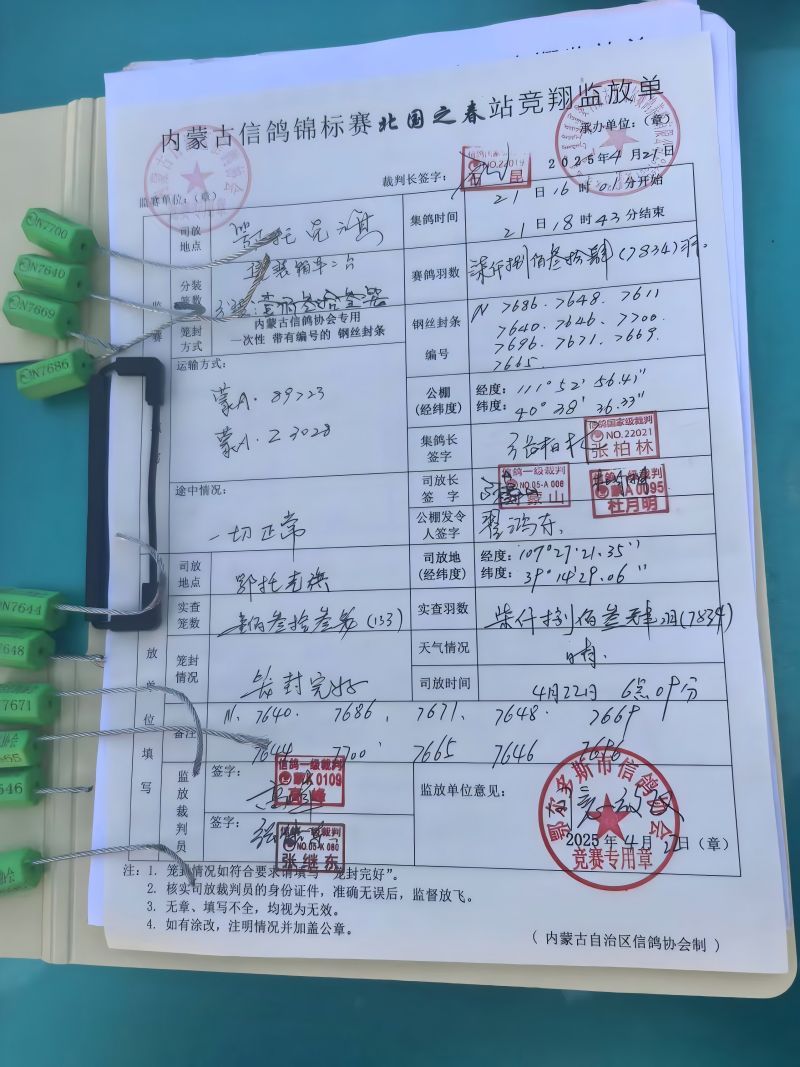 内蒙古信鸽锦标赛北国之春站竞翔监放单
监赛单位：（章）
承办单位：（章）
裁判长签字：
2025年4月21日
NO.22014
昆
司放地点
集鸽时间
21日16时01分开始
21日18时43分结束
分装笼数
赛鸽羽数
柒仟捌佰叁拾肆(7834)羽.
笼封方式
内蒙古信鸽协会专用
一次性 带有编号的 钢丝封条
钢丝封条
编号
N 7686. 7648. 7611
7640. 7646. 7700.
7696. 7671. 7669.
7665.
运输方式：
蒙A. 89723
蒙A. Z3028
公棚
(经纬度)
经度：111°52′56.41″
纬度：40°38′36.33″
集鸽长
签字
张柏林
信鸽国家级裁判
NO.22021
张柏林
途中情况：
一切正常
司放长
签 字
信鸽一级裁判
NO.05-A 006
信鸽一级裁判
蒙A 0095
杜月明
公棚发令
人签字
翟鸿东.
司放
地点
鄂托克旗
司放地
(经纬度)
经度：107°27′21.35″
纬度：39°14′29.06″
实查
笼数
壹佰叁拾叁笼(133)
实查羽数
柒仟捌佰叁拾肆羽(7834)
笼封
情况
笼封完好
天气情况
晴.
司放时间
4月22日 6点09分
备注
N. 7640. 7686. 7671. 7648. 7669
7644 7700 7665 7646 7696
放单位填写
监放裁判员
签字：
信鸽一级裁判
蒙K 0109
高峰
签字：
信鸽一级裁判
NO.05-K 080
张继东
监放单位意见：
鄂尔多斯市信鸽协会
竞赛专用章
2025年4月22日（章）
注：1. 笼封情况如符合要求请填写“笼封完好”。
2. 核实司放裁判员的身份证件，准确无误后，监督放飞。
3. 无章、填写不全，均视为无效。
4. 如有涂改，注明情况并加盖公章。
（内蒙古自治区信鸽协会制）
N7700
N7640
N7669
N7686
N7644
7648
7671